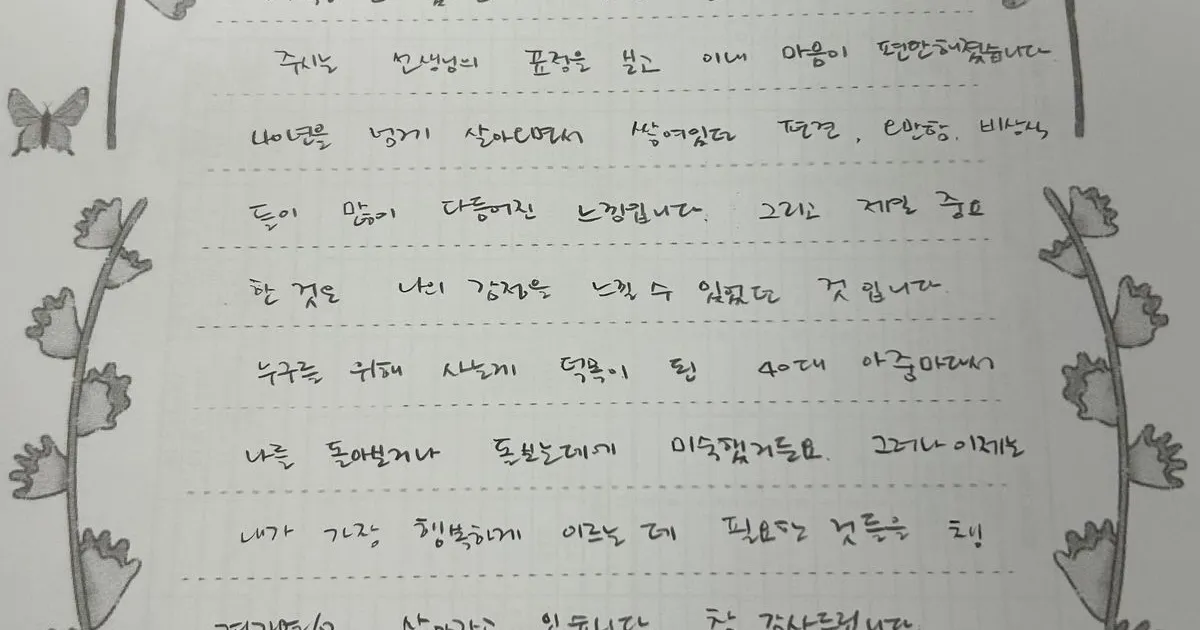 주시는 선생님의 표정을 보고 이내 마음이 편안해졌습니다.
40년을 넘게 살아오면서 쌓여있던 편견, 오만함, 비상식
들이 많이 다듬어진 느낌입니다. 그리고 제일 중요
한 것은 나의 감정을 느낄 수 있었던 것 입니다.
누구를 위해 사는게 덕목이 된 40대 아줌마라서
나를 돌아보거나 돌보는데에 미숙했거든요. 그러나 이제는
내가 가장 행복하게 이르는 데 필요한 것들을
살아가고 있습니다. 참 감사드립니다.